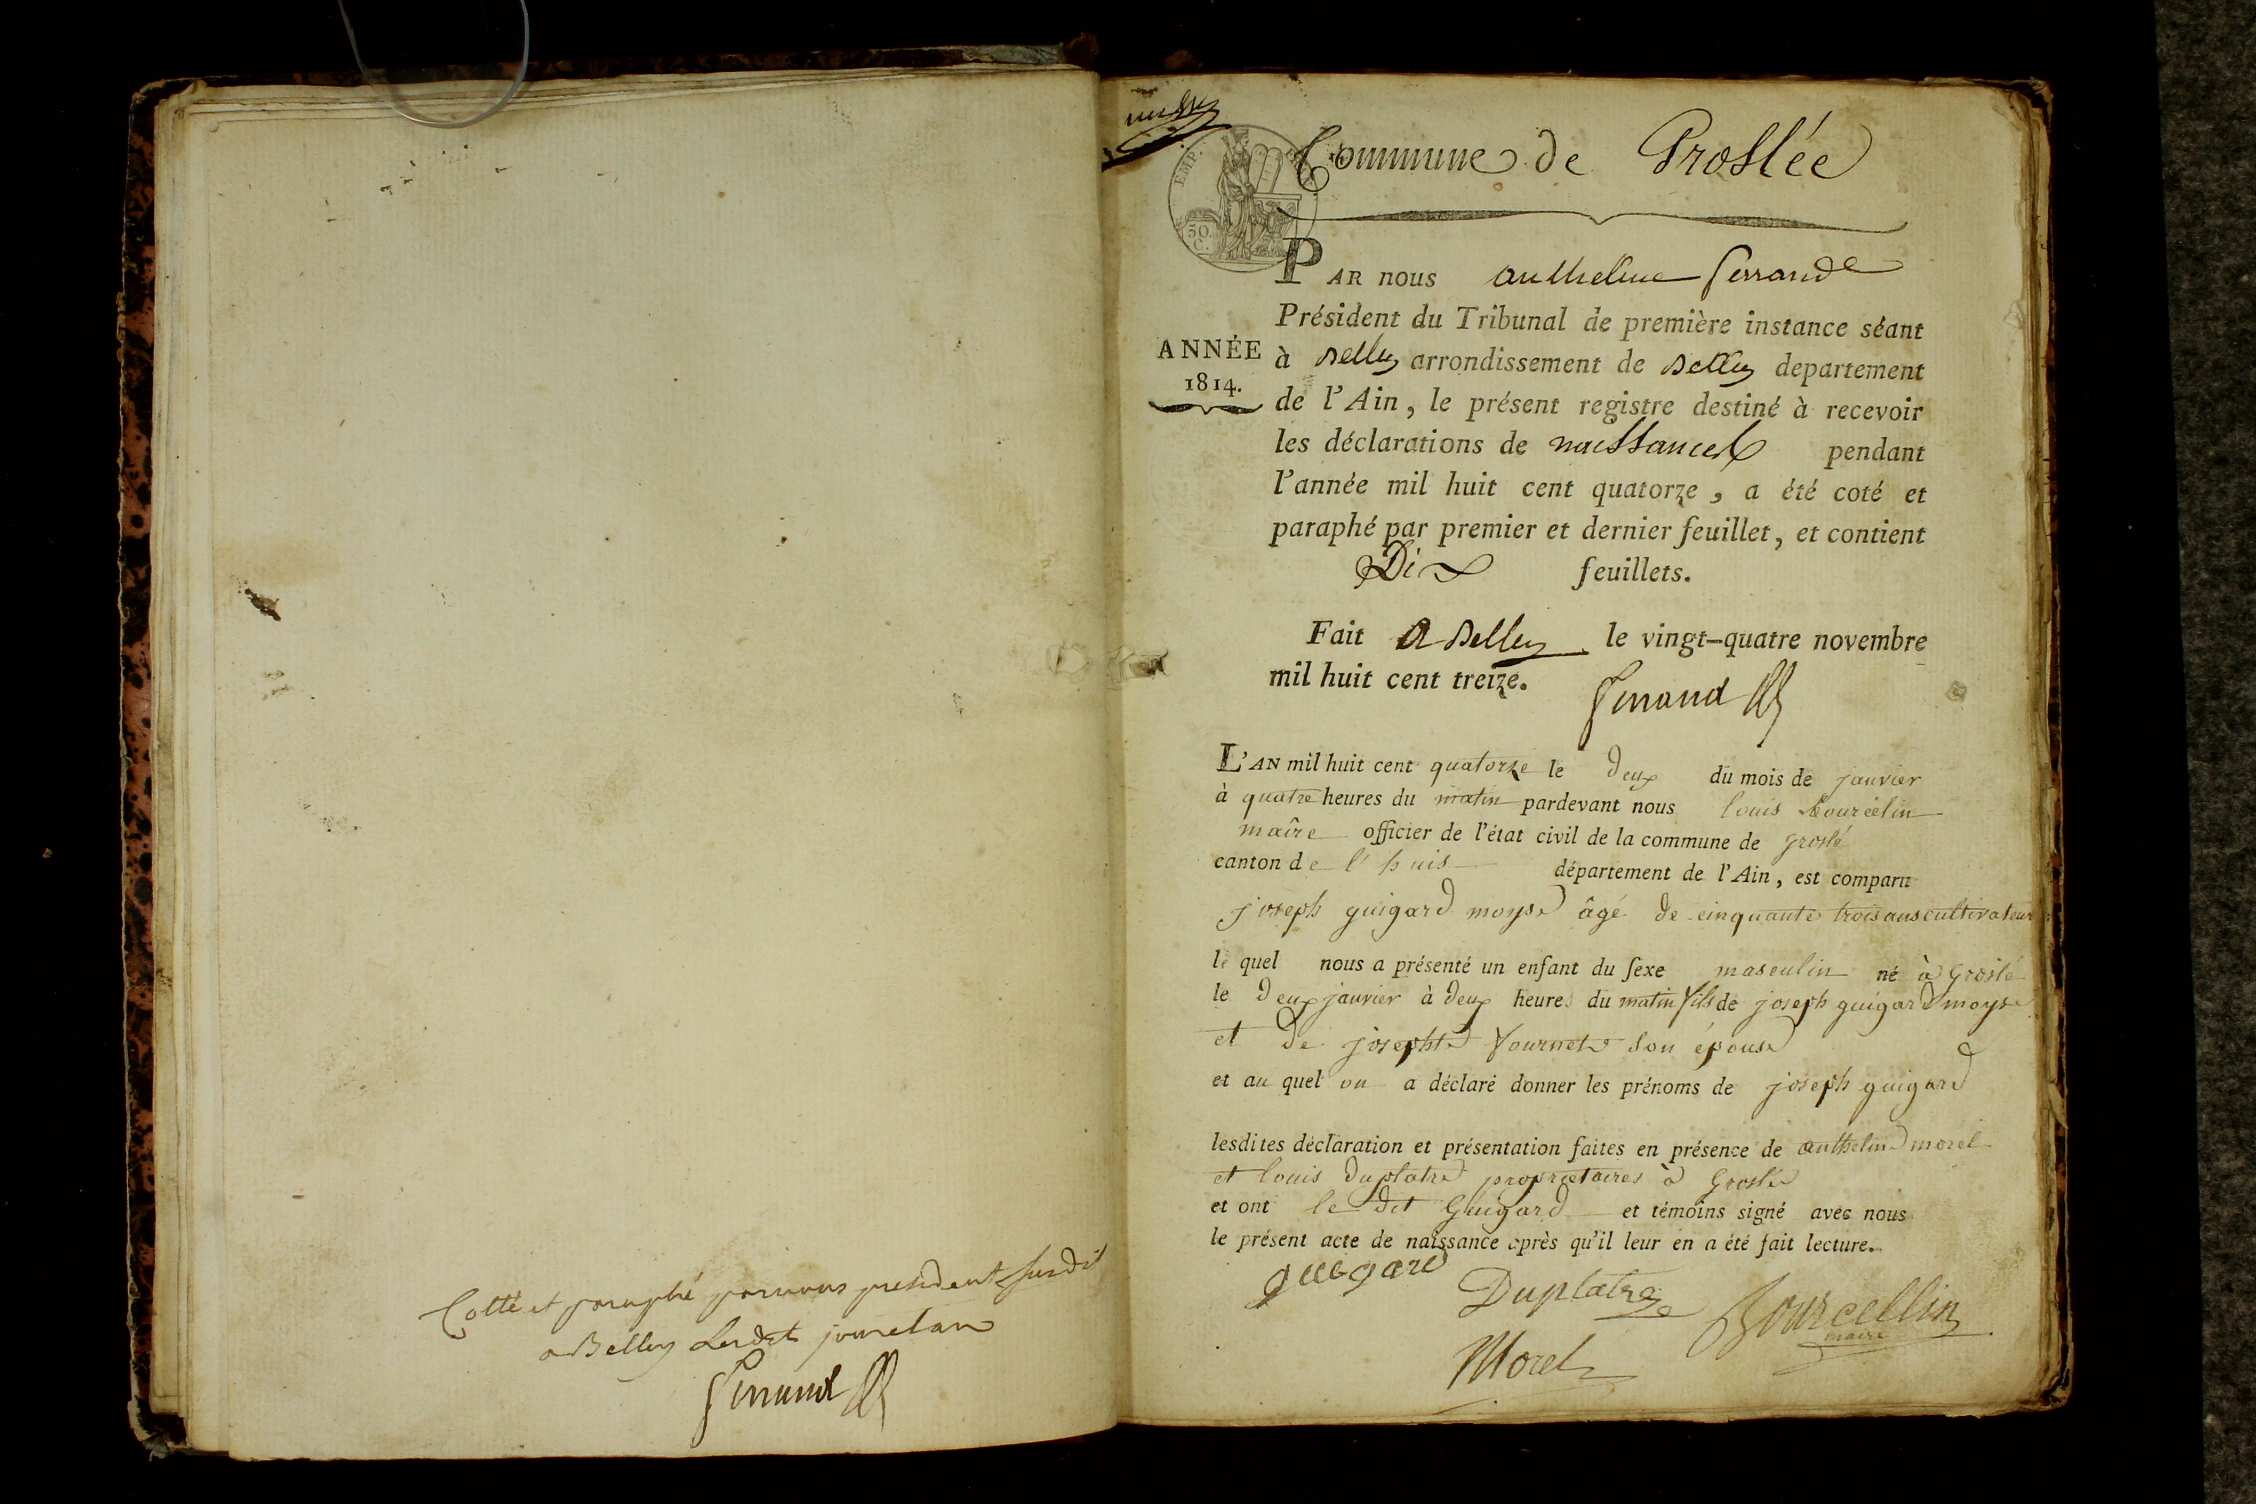 Cotté et paraphé par nous president susdit
a Belley lesdits jour et an
Ferrand
EMP.
50.
C.
Commune de Groslée
PAR nous anthelme ferrand
Président du Tribunal de première instance séant
ANNÉE
1814.
à Belley arrondissement de Belley departement
de l'Ain, le présent registre destiné à recevoir
les déclarations de naissances pendant
l'année mil huit cent quatorze, a été coté et
paraphé par premier et dernier feuillet, et contient
Dix feuillets.
Fait a Belley le vingt-quatre novembre
mil huit cent treize.
Ferrand
L'AN mil huit cent quatorze le deux du mois de janvier
à quatre heures du matin pardevant nous louis bourcelin
maire officier de l'état civil de la commune de groslé
canton de l'huis département de l'Ain, est comparu
joseph guigard moyse âgé de cinquante trois ans cultivateur
le quel nous a présenté un enfant du sexe masculin né à Groslé
le deux janvier à deux heures du matin fils de joseph guigard moyse
et de josephte fournet son épouse
et au quel on a déclaré donner les prénoms de joseph guigard
lesdites déclaration et présentation faites en présence de anthelme morel
et louis duplatre propriétaires à Groslée
et ont le dit Guigard et témoins signé avec nous
le présent acte de naissance après qu'il leur en a été fait lecture.
guigard
Duplatre
Bourcellin
maire
Morel